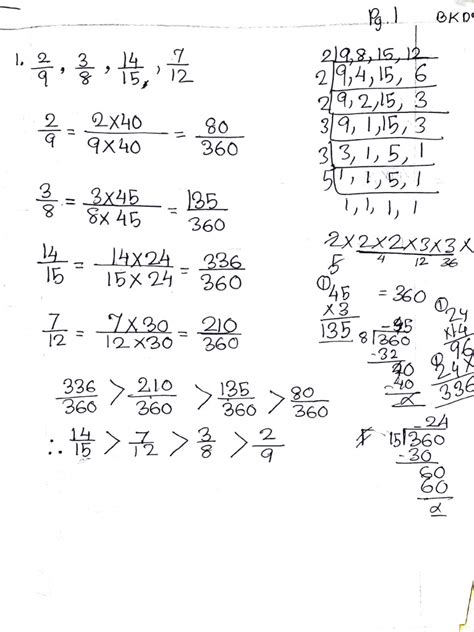 Pg. 1 BKD
1. 2/9, 3/8, 14/15, 7/12
2/9 = 2×40/9×40 = 80/360
3/8 = 3×45/8×45 = 135/360
14/15 = 14×24/15×24 = 336/360
7/12 = 7×30/12×30 = 210/360
336/360 > 210/360 > 135/360 > 80/360
∴ 14/15 > 7/12 > 3/8 > 2/9
2 | 9, 8, 15, 12
2 | 9, 4, 15, 6
2 | 9, 2, 15, 3
3 | 9, 1, 15, 3
3 | 3, 1, 5, 1
5 | 1, 1, 5, 1
1, 1, 1, 1
2×2×2×3×3×
5 4 12 36
= 360
①
45
×3
135
①
24
×14
96
24×
336
45
8 | 360
-32
40
-40
24
15 | 360
-30
60
60